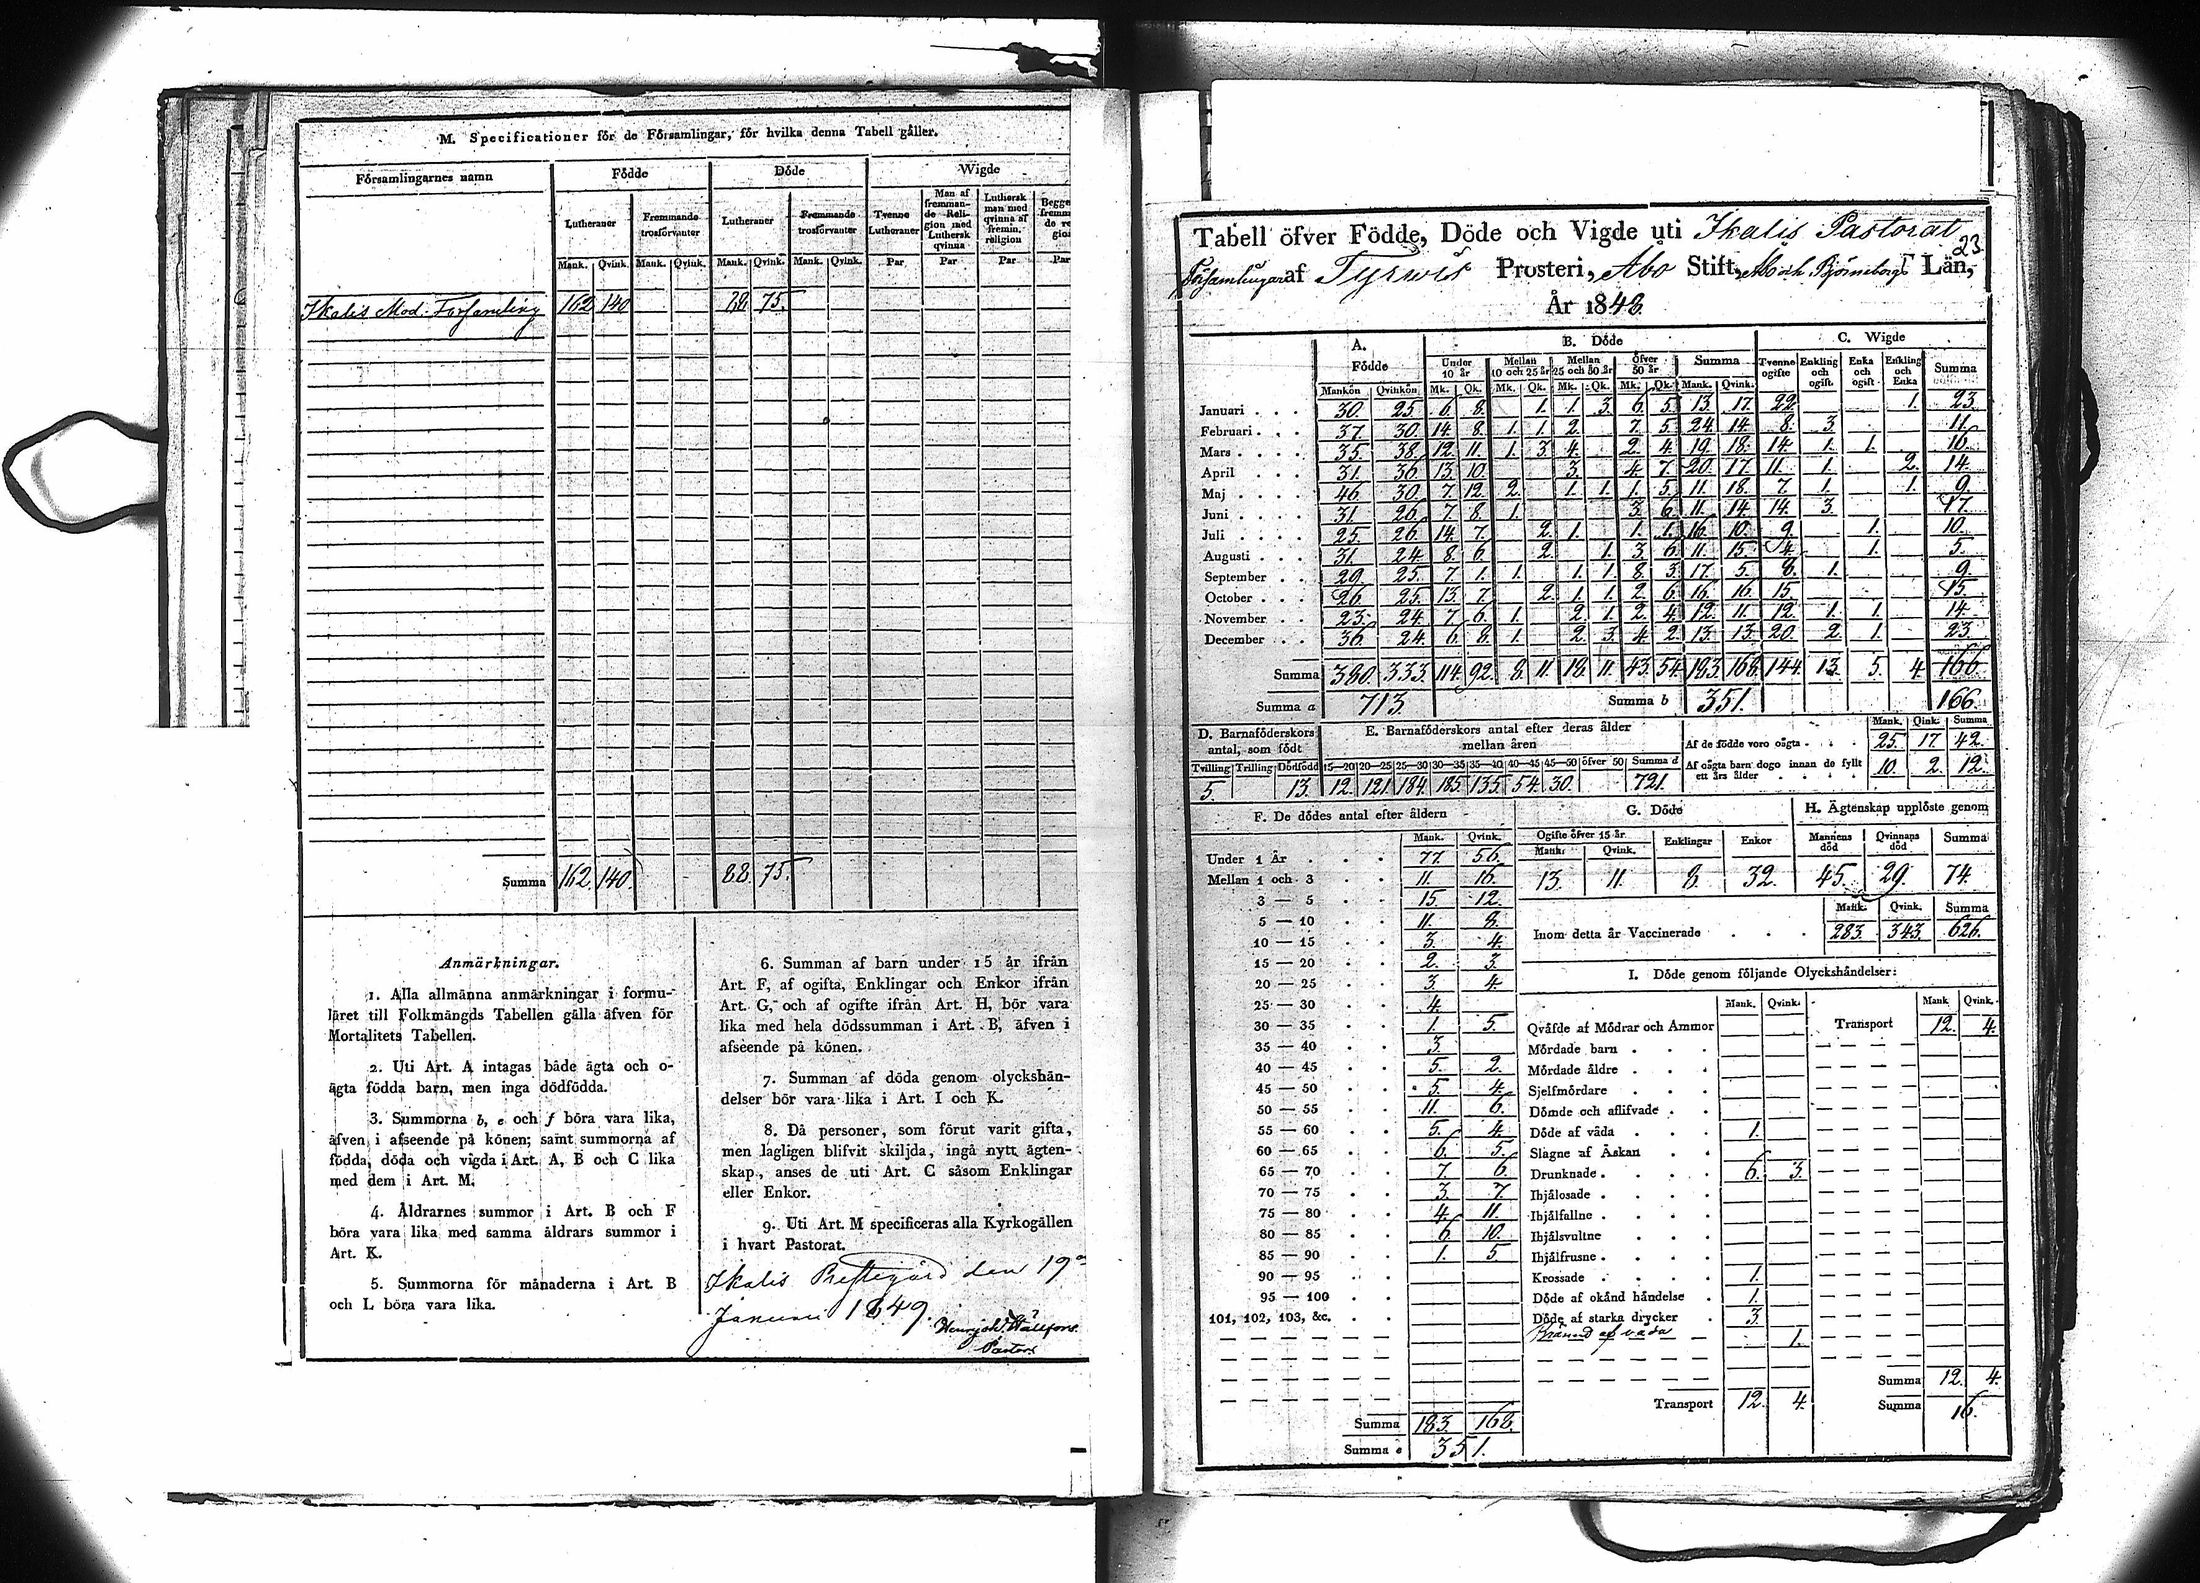 M. Specificationer för de Församlingar, för hvilka denna Tabell gäller.
Församlingarnes namn Födde Döde Wigde
Lutheraner Fremmande trosförvanter Lutheraner Fremmande trosförvanter Tvenne Lutheraner Man af fremmande Religion med Luthersk qvinna Luthersk man med qvinna af fremm. religion
Mank. Qvink. Mank. Qvink. Mank. Qvink. Mank. Qvink. Par Par Par Par
Ikalis Mod. Församling 162 140 88 75.
Summa 162. 140. 88. 75.
Anmärkningar.
1. Alla allmänna anmärkningar i formu-
läret till Folkmängds Tabellen gälla äfven för
Mortalitets Tabellen.
2. Uti Art. A intagas både ägta och o-
ägta födda barn, men inga dödfödda.
3. Summorna b, e och f böra vara lika,
äfven i afseende på könen; samt summorna af
födda, döda och vigda i Art. A, B och C lika
med dem i Art. M.
4. Åldrarnes summor i Art. B och F
böra vara lika med samma åldrars summor i
Art. K.
5. Summorna för månaderna i Art. B
och L böra vara lika.
6. Summan af barn under 15 år ifrån
Art. F, af ogifta, Enklingar och Enkor ifrån
Art. G, och af ogifte ifrån Art. H, bör vara
lika med hela dödssumman i Art. B, äfven i
afseende på könen.
7. Summan af döda genom olyckshän-
delser bör vara lika i Art. I och K.
8. Då personer, som förut varit gifta,
men lagligen blifvit skiljda, ingå nytt ägten-
skap, anses de uti Art. C såsom Enklingar
eller Enkor.
9. Uti Art. M specificeras alla Kyrkogällen
i hvart Pastorat.
Ikalis Prestegård den 19
Januari 1849.
Pastor.
Tabell öfver Födde, Döde och Vigde uti Ikalis Pastorat
23.
Församlingar af Tyrvis Prosteri, Åbo Stift, Åbo och Björneborgs Län,
År 1848.
A. Födde B. Döde C. Wigde
Under 10 år Mellan 10 och 25 år Mellan 25 och 50 år Öfver 50 år Summa Tvenne ogifte Enkling och ogift. Enka och ogift. Enkling och Enka Summa
Mankön Qvinkön Mk. Qk. Mk. Qk. Mk. Qk. Mk. Qk. Mank. Qvink.
Januari 30. 25. 6. 8. 1. 1. 3. 6. 5. 13. 17. 22. 1. 23.
Februari 37. 30. 14. 8. 1. 1. 2. 7. 5. 24. 14. 8. 3. 11.
Mars 35. 38. 12. 11. 1. 3. 4. 2. 4. 19. 18. 14. 1. 1. 16.
April 31. 36. 13. 10. 3. 4. 7. 20. 17. 11. 1. 2. 14.
Maj 46. 30. 7. 12. 2. 1. 1. 1. 5. 11. 18. 7. 1. 1. 9.
Juni 31. 26. 7. 8. 1. 3. 6. 11. 14. 14. 3. 17.
Juli 25. 26. 14. 7. 2. 1. 1. 1. 16. 10. 9. 1. 10.
Augusti 31. 24. 8. 6. 2. 1. 3. 6. 11. 15. 4. 1. 5.
September 29. 25. 7. 1. 1. 1. 1. 8. 3. 17. 5. 8. 1. 9.
October 26. 25. 13. 7. 2. 1. 1. 2. 6. 16. 16. 15. 15.
November 23. 24. 7. 6. 1. 2. 1. 2. 4. 12. 11. 12. 1. 1. 14.
December 36. 24. 6. 8. 1. 2. 3. 4. 2. 13. 13. 20. 2. 1. 23.
Summa 380. 333. 114. 92. 8. 11. 18. 11. 43. 54. 183. 168. 144. 13. 5. 4 166.
Summa a 713. Summa b 351. 166.
D. Barnaföderskors antal, som födt
Tvilling Trilling Dödfödd
5. 13.
E. Barnaföderskors antal efter deras ålder mellan åren
15—20 20—25 25—30 30—35 35—40 40—45 45—50 öfver 50 Summa d
12. 121. 184. 185. 135. 54. 30. 721.
Mank. Qink. Summa
Af de födde voro oägta 25. 17. 42.
Af oägta barn dogo innan de fyllt ett års ålder 10. 2. 12.
F. De dödes antal efter åldern
Mank. Qvink.
Under 1 År 77. 56.
Mellan 1 och 3 11. 16.
3 — 5 15. 12.
5 — 10 11. 8.
10 — 15 3. 4.
15 — 20 2. 3.
20 — 25 3. 4.
25 — 30 4.
30 — 35 1. 5.
35 — 40 3.
40 — 45 5. 2.
45 — 50 5. 4.
50 — 55 11. 6.
55 — 60 5. 4.
60 — 65 6. 5.
65 — 70 7. 6.
70 — 75 3. 7.
75 — 80 4. 11.
80 — 85 6. 10.
85 — 90 1. 5.
90 — 95
95 — 100
101, 102, 103, &c.
Summa 183. 168.
Summa e 351.
G. Döde
Ogifte öfver 15 år Enklingar Enkor
Mank. Qvink.
13. 11. 8. 32.
H. Ägtenskap upplöste genom
Mannens död Qvinnans död Summa
45. 29. 74.
Mank. Qvink. Summa
Inom detta år Vaccinerade 283. 343. 626.
I. Döde genom följande Olyckshändelser:
Mank. Qvink. Mank. Qvink.
Qväfde af Mödrar och Ammor Transport 12. 4.
Mördade barn
Mördade äldre
Sjelfmördare
Dömde och aflifvade
Döde af våda 1.
Slagne af Åskan
Drunknade 6. 3.
Ihjälosade
Ihjälfallne
Ihjälsvultne
Ihjälfrusne
Krossade 1.
Döde af okänd händelse 1.
Döde af starka drycker 3.
Bränd af våda 1.
Summa 12. 4.
Transport 12. 4. Summa 16.